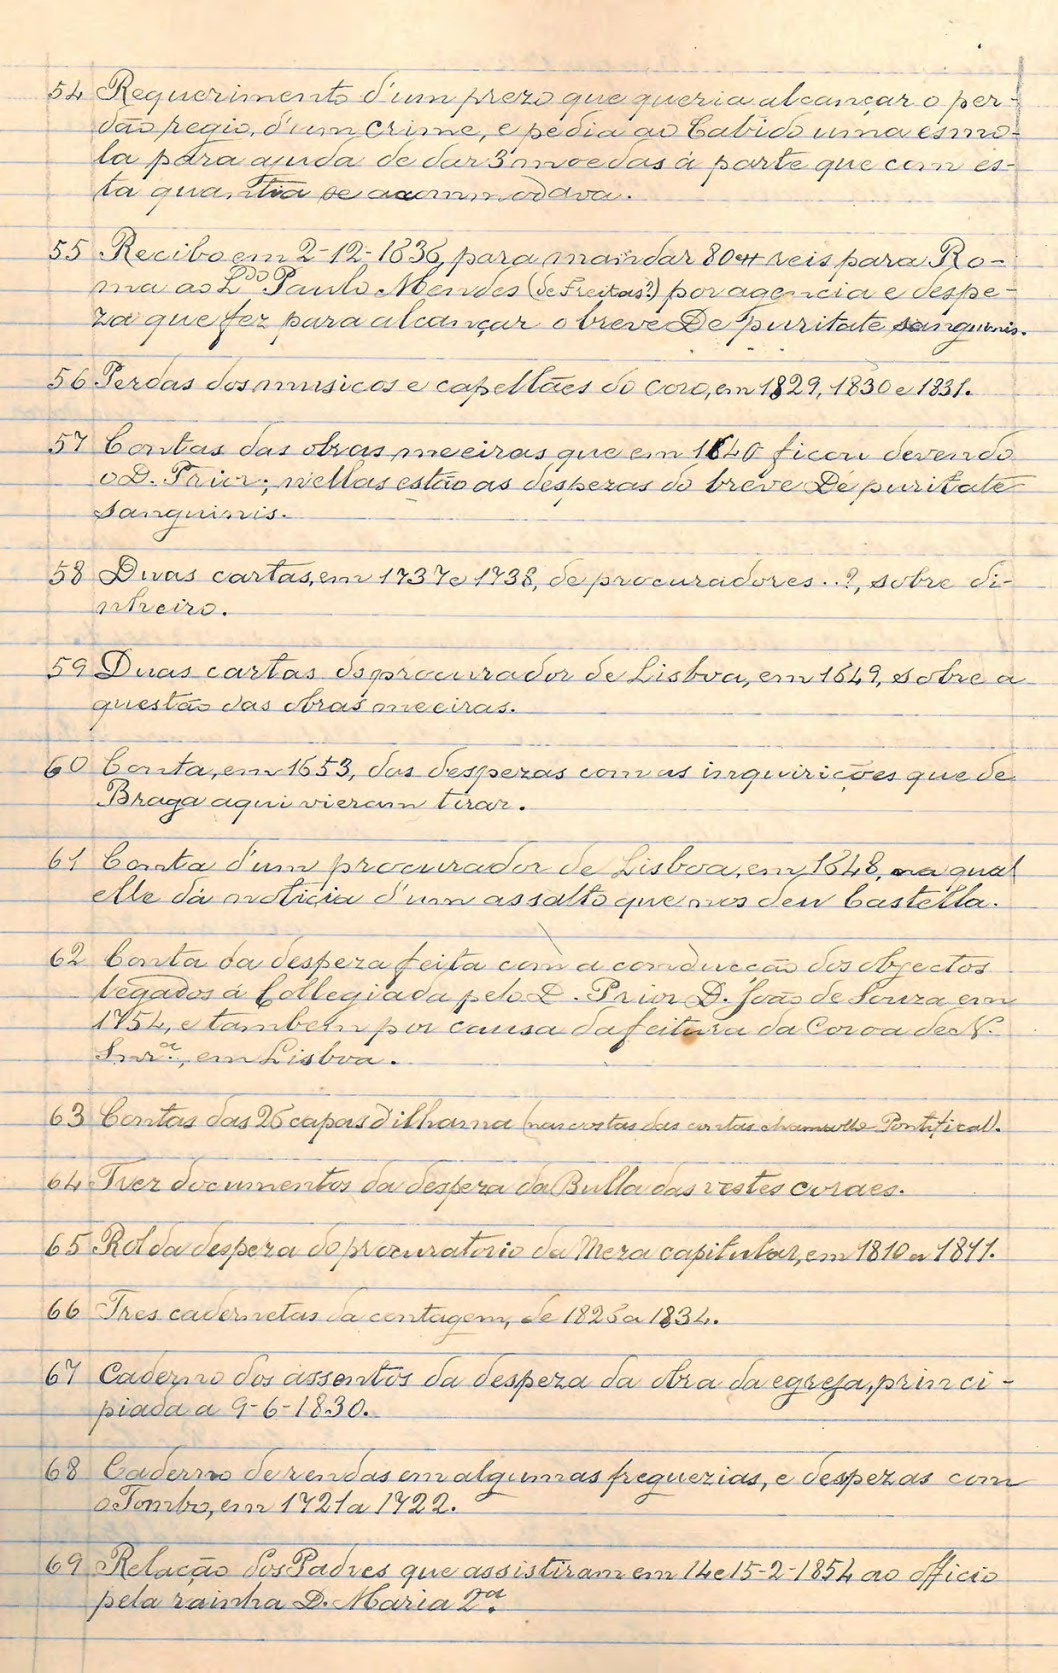 54 Requerimento d'um prezo que queria alcançar o per-
dão regio, d'um crime, e pedia ao Cabido uma esmo-
la para ajuda de dar 3 moedas á parte que com es-
ta quantia se accommodava.
55 Recibo em 2-12-1636, para mandar 80# reis para Ro-
ma ao L.do Paulo Mendes (de Freitas?) por agencia e despe-
za que fez para alcançar o breve De puritate sanguinis.
56 Perdas dos musicos e capellães do coro, em 1829, 1830 e 1831.
57 Contas das obras meeiras que em 1640 ficou devendo
o D. Prior; n'ellas estão as despezas do breve De puritate
sanguinis.
58 Duas cartas, em 1737 e 1738, de procuradores..?, sobre di-
nheiro.
59 Duas cartas do procurador de Lisboa, em 1649, sobre a
questão das obras meeiras.
60 Conta, em 1653, das despezas com as inquirições que de
Braga aqui vieram tirar.
61 Conta d'um procurador de Lisboa, em 1648, na qual
elle dá noticia d'um assalto que nos deu Castella.
62 Conta da despeza feita com a conducção dos objectos
legados á Collegiada pelo D. Prior D. João de Souza em
1754, e tambem por causa da feitura da Coroa de N.
Snr.a, em Lisboa.
63 Contas das 26 capas d'ilhama (nas costas das contas chamou-lhe Pontifical).
64 Trez documentos da despeza da Bulla das vestes coraes.
65 Rol da despeza do procuratorio da Meza capitular, em 1810 a 1811.
66 Tres cadernetas da contagem, de 1826 a 1834.
67 Caderno dos assentos da despeza da obra da egreja, princi-
piada a 9-6-1830.
68 Caderno de rendas em algumas freguezias, e despezas com
o Tombo, em 1721 a 1722.
69 Relação dos Padres que assistiram em 14 e 15-2-1854 ao officio
pela rainha D. Maria 2.a